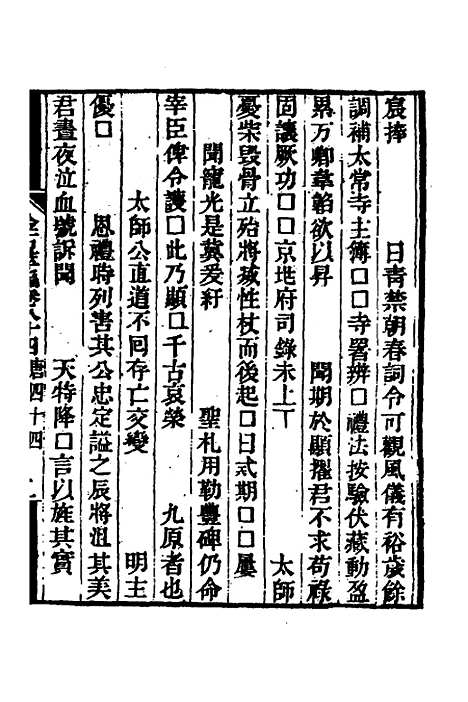 宸捧　日青禁朝春詞令可觀風儀有裕歲餘
調補太常寺主簿□□寺署辨□禮法按驗伏藏動盈
累万卿韋縚欲以昇　聞期於顯擢君不求苟祿
固讓厥功□□京地府司錄未上丁　太師
憂柴毀骨立殆將滅性杖而後起□日弍期□□屢
聞寵光是冀爰紆　聖札用勒豐碑仍命
宰臣俾令護□此乃顯□千古哀榮　九原者也
太師公直道不回存亡交變　明主
優□　恩禮時列害其公忠定謚之辰將沮其美
君晝夜泣血號訴聞　天特降□言以旌其實
金石萃編卷八十四 唐四十四